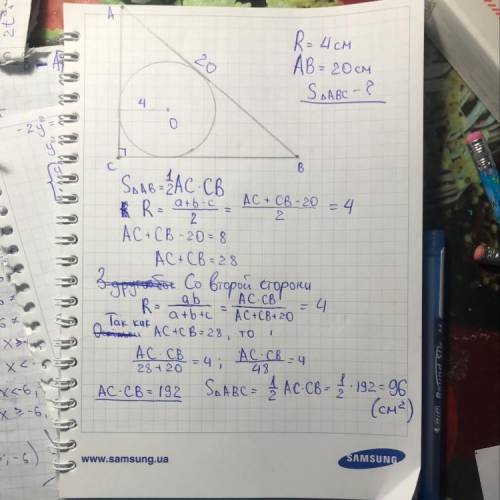 A
20
4
O
C
B
R = 4 см
AB = 20 см
S△ABC - ?
S△AB = 1/2 AC · CB
R = (a+b-c)/2 = (AC + CB - 20)/2 = 4
AC + CB - 20 = 8
AC + CB = 28
Со второй стороны
R = ab/(a+b+c) = AC·CB/(AC+CB+20) = 4
Так как
AC+CB=28, то
AC·CB/(28+20) = 4 ; AC·CB/48 = 4
AC·CB = 192
S△ABC = 1/2 AC·CB = 1/2 · 192 = 96
(см²)
www.samsung.ua
SAMSUNG